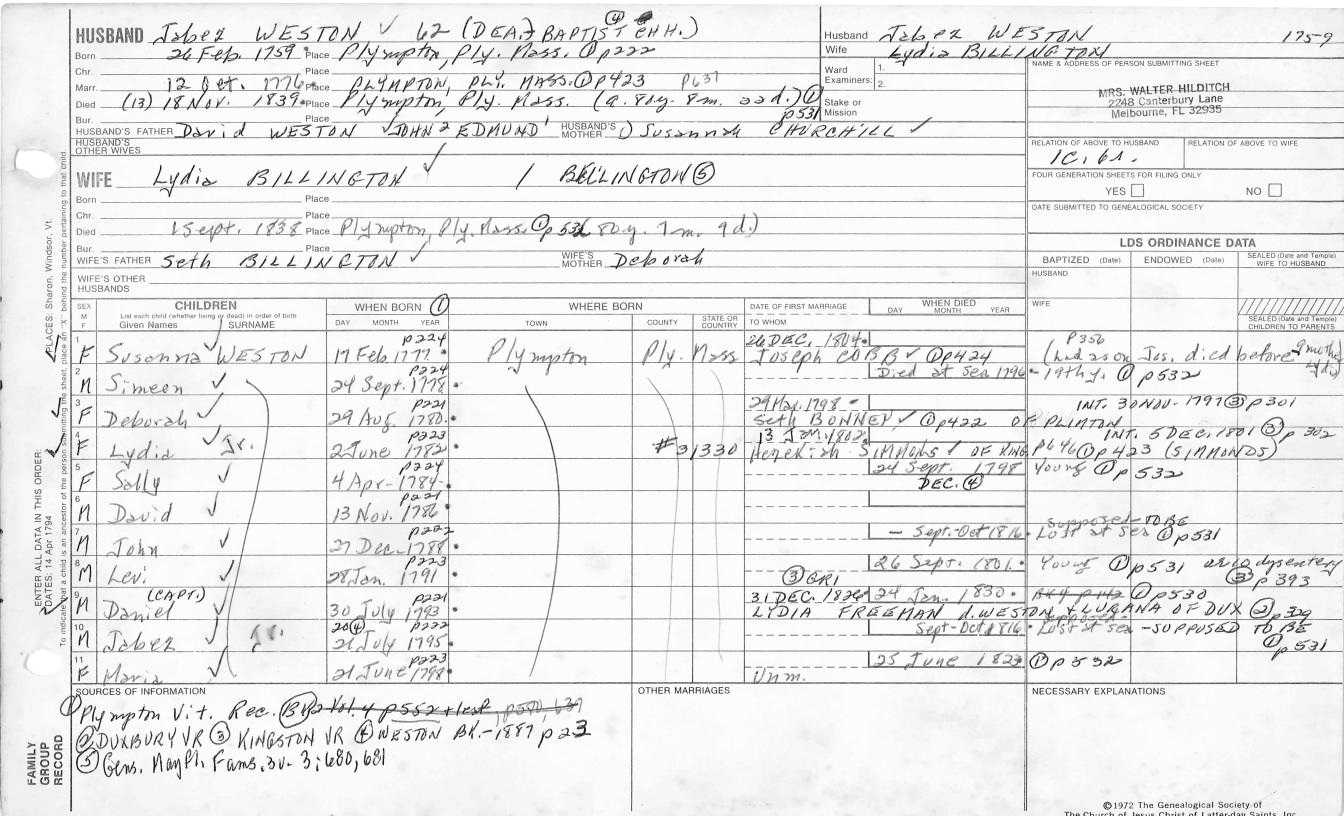 HUSBAND Jabez WESTON ✓ 62 (DEA.) BAPTIST CHH.) ④
Born 26 Feb. 1759 Place Plympton, Ply. Mass. ① p222
Chr. Place
Marr. 12 Oct. 1776 Place PLYMPTON, PLY. MASS. ① p423 p637
Died (13) 18 Nov. 1839 Place Plympton, Ply. Mass. (a. 80y. 8m. 22d.) ① p531
Bur. Place
HUSBAND'S FATHER David WESTON ✓ JOHN2 EDMUND1 HUSBAND'S MOTHER 1) Susannah CHURCHILL ✓
HUSBAND'S OTHER WIVES
Husband Jabez WESTON 1759
Wife Lydia BILLINGTON
Ward Examiners: 1. 2.
Stake or Mission
NAME & ADDRESS OF PERSON SUBMITTING SHEET
MRS. WALTER HILDITCH
2248 Canterbury Lane
Melbourne, FL 32935
RELATION OF ABOVE TO HUSBAND RELATION OF ABOVE TO WIFE
1C. 6r.
FOUR GENERATION SHEETS FOR FILING ONLY
YES NO
DATE SUBMITTED TO GENEALOGICAL SOCIETY
WIFE Lydia BILLINGTON ✓ / BELLINGTON ⑤
Born Place
Chr. Place
Died 1 Sept. 1838 Place Plympton, Ply. Mass. ① p532 80y. 7m. 9d.)
Bur. Place
WIFE'S FATHER Seth BILLINGTON ✓ WIFE'S MOTHER Deborah
WIFE'S OTHER HUSBANDS
LDS ORDINANCE DATA
BAPTIZED (Date) ENDOWED (Date) SEALED (Date and Temple) WIFE TO HUSBAND
HUSBAND
WIFE
SEALED (Date and Temple) CHILDREN TO PARENTS
SEX M F CHILDREN WHEN BORN ① WHERE BORN DATE OF FIRST MARRIAGE WHEN DIED
List each child (whether living or dead) in order of birth
Given Names SURNAME DAY MONTH YEAR TOWN COUNTY STATE OR COUNTRY TO WHOM DAY MONTH YEAR
1 F Susanna ✓ WESTON 17 Feb. 1777 p224 Plympton Ply. Mass 26 DEC. 1804 Joseph COBB ✓ ① p424 p356 (had a son Jos. died before
2 M Simeon ✓ 24 Sept. 1778 p224 Died at Sea 1796 - 19th y. ① p532
3 F Deborah ✓ 29 Aug. 1780 p221 29 Mar. 1798 Seth BONNEY ✓ ① p422 OF PLIMTON INT. 30 NOV. 1797 ③ p301
4 F Lydia ✓ Jr. 2 June 1782 p223 #31330 13 JAN. 1802 Hezekiah SIMMONS ✓ OF KING. p646 ① p423 (SIMMONDS) INT. 5 DEC. 1801 ③ p302
5 F Sally ✓ 4 Apr. 1784 p224 24 Sept. 1798 DEC. ④ Young ① p532
6 M David ✓ 13 Nov. 1786 p221
7 M John ✓ 27 Dec. 1788 p222 - Sept.-Oct 1816 Supposed TO BE Lost at Sea ① p531
8 M Levi ✓ 28 Jan. 1791 p223 26 Sept. 1801 Young ① p531 dysentery ③ p393
9 M Daniel (CAPT.) ✓ 30 July 1793 p221 ③ GR1 31 DEC. 1826 24 Jan. 1830 ① p530 LYDIA FREEMAN d. WESTON + LURANA OF DUX ② p329
10 M Jabez ✓ Jr. 21 July 1795 20④ p222 Sept-Oct 1816 Lost at sea - SUPPOSED TO BE ① p531
11 F Maria ✓ 21 June 1798 p223 Unm. 25 June 1823 ① p532
SOURCES OF INFORMATION OTHER MARRIAGES NECESSARY EXPLANATIONS
① Plympton Vit. Rec. Bk 2 Vol. 4 p552 + last, p550, 637
② DUXBURY VR ③ KINGSTON VR ④ WESTON BK.-1887 p23
⑤ Gens. Mayfl. Fams. 3v- 3:680,681
PLACES: Sharon, Windsor, Vt.
ENTER ALL DATA IN THIS ORDER:
DATES: 14 Apr 1794
To indicate that a child is an ancestor of the person submitting the sheet, place an "X" behind the number pertaining to that child.
FAMILY GROUP RECORD
©1972 The Genealogical Society of
The Church of Jesus Christ of Latter-day Saints, Inc.